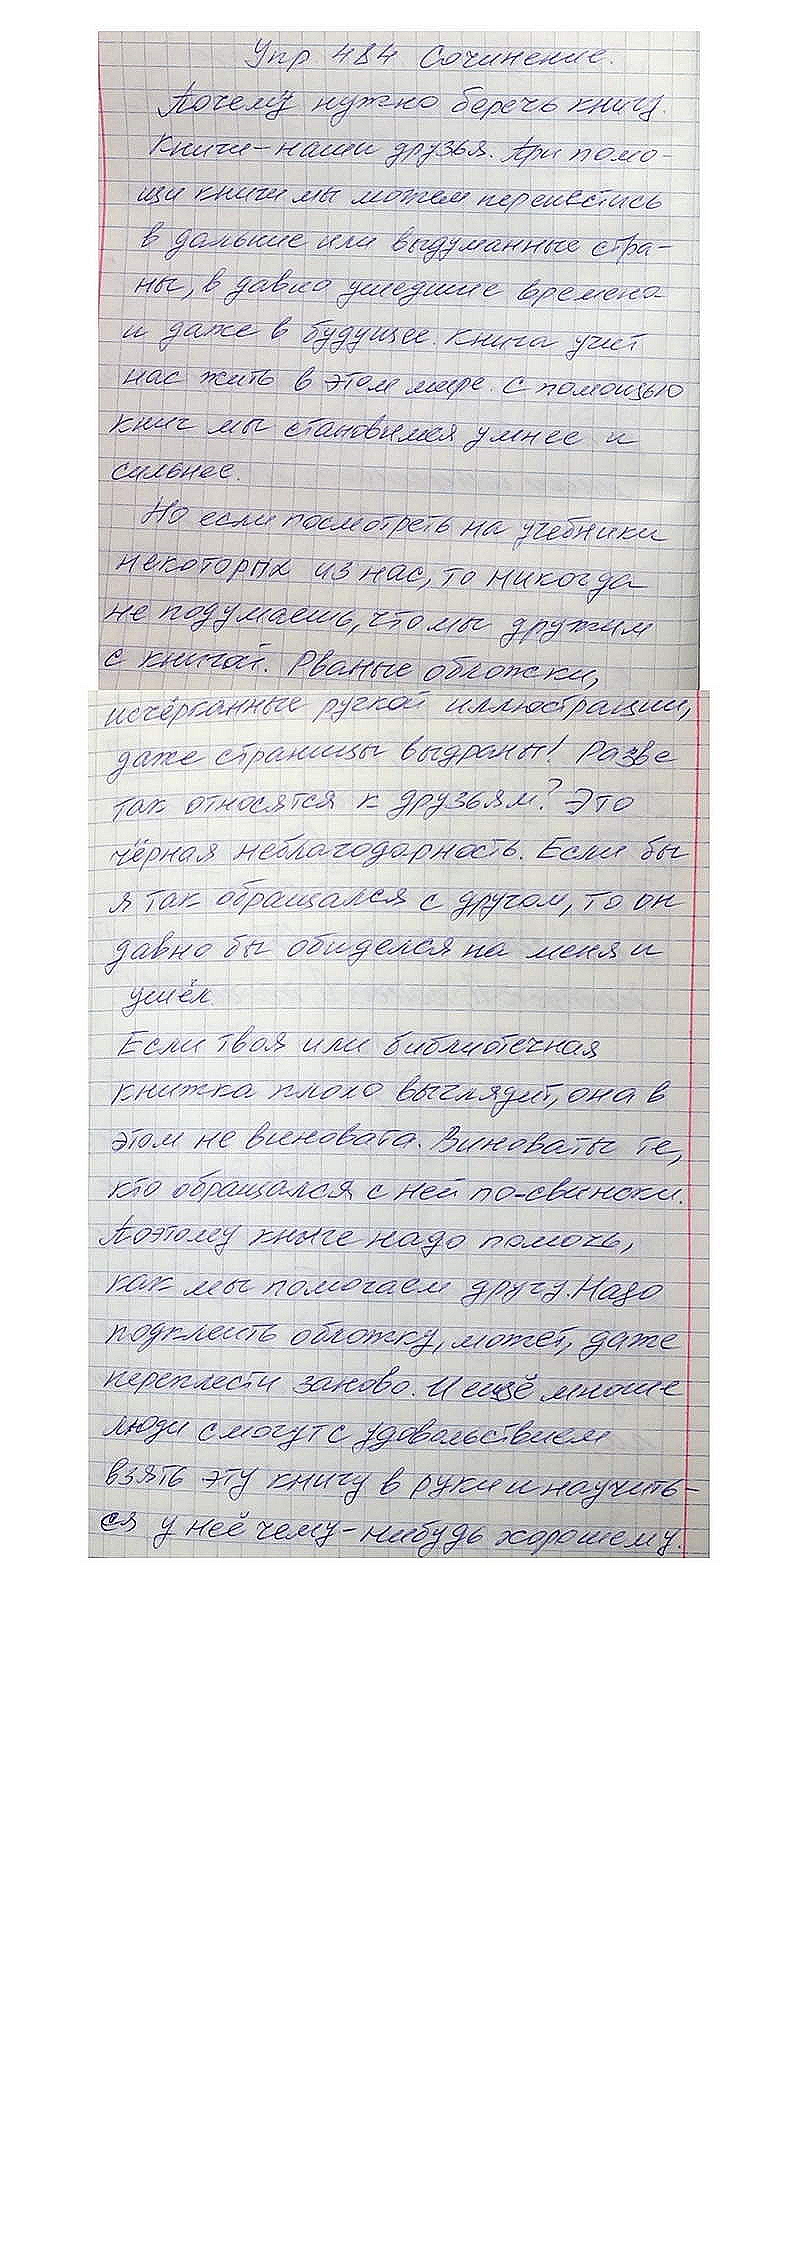 Упр 484 Сочинение.
Почему нужно беречь книгу.
Книги-наши друзья. При помо-
щи книги мы можем перенестись
в дальние или выдуманные стра-
ны, в давно ушедшие времена
и даже в будущее. Книга учит
нас жить в этом мире. С помощью
книг мы становимся умнее и
сильнее.
Но если посмотреть на учебники
некоторых из нас, то никогда
не подумаешь, что мы дружим
с книгой. Рваные обложки,
исчёрканные ручкой иллюстрации,
даже страницы выдраны! Разве
так относятся к друзьям? Это
чёрная неблагодарность. Если бы
я так обращался с другом, то он
давно бы обиделся на меня и
ушёл.
Если твоя или библиотечная
книжка плохо выглядит, она в
этом не виновата. Виноваты те,
кто обращался с ней по-свински.
Поэтому книге надо помочь,
как мы помогаем другу. Надо
подклеить обложку, может, даже
переплести заново. И ещё многие
люди смогут с удовольствием
взять эту книгу в руки и научить-
ся у неё чему-нибудь хорошему.